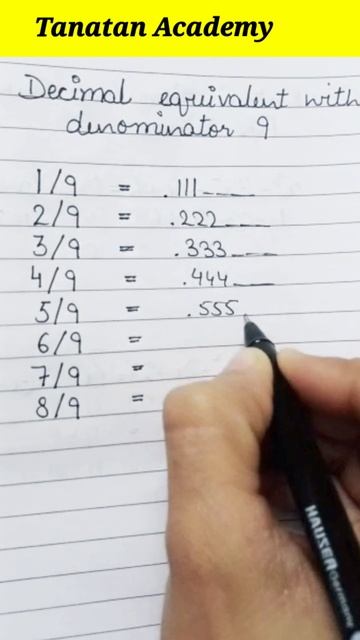 Tanatan Academy
Decimal equivalent with
denominator 9
1/9 = .111----
2/9 = .222----
3/9 = .333----
4/9 = .444----
5/9 = .555
6/9 =
7/9 =
8/9 =
HAUSER Germany